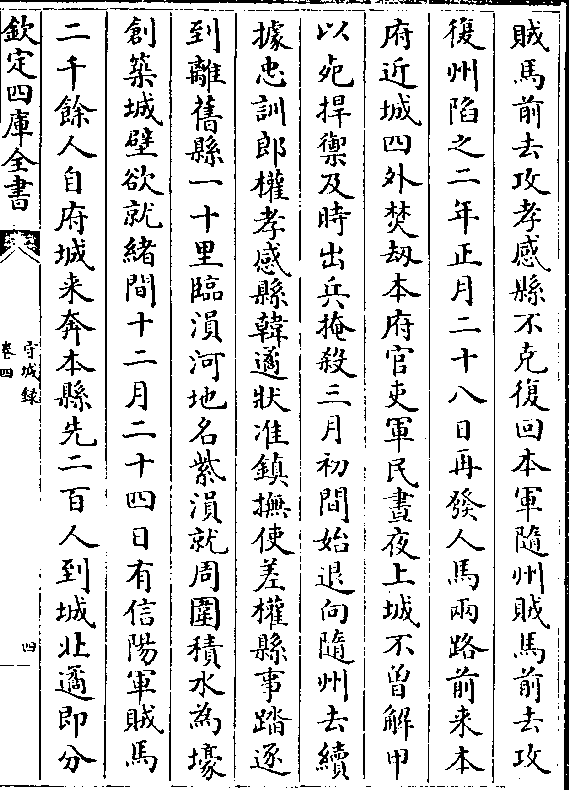 賊馬前去攻孝感縣不克復回本軍隨州賊馬前去攻
復州陷之二年正月二十八日再發人馬兩路前来本
府近城四外焚刼本府官吏軍民晝夜上城不曾解甲
以死捍禦及時出兵掩殺三月初間始退向隨州去續
據忠訓郎權孝感縣韓遹狀准鎮撫使差權縣事踏逐
到離舊縣一十里臨溳河地名紫溳就周圍積水為壕
創築城壁欲就緒間十二月二十四日有信陽軍賊馬
二千餘人自府城来奔本縣先二百人到城北遹即分
欽定四庫全書
守城録
卷四
四